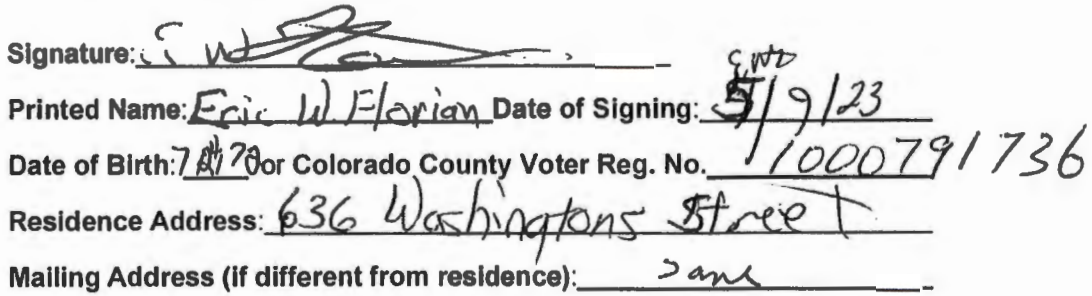 Signature:
Printed Name: Eric W. Florian Date of Signing: 5/9/23
Date of Birth: or Colorado County Voter Reg. No. 1000791736
Residence Address: 636 Washingtons Street
Mailing Address (if different from residence): Same